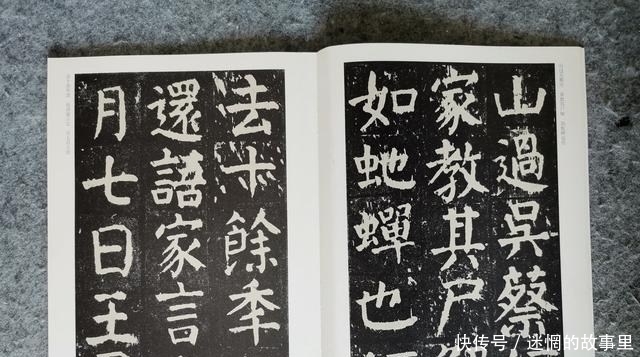 山過吳蔡
家教其尸
如虵蟬也
法十餘季
還語家言
月七日王
快传号／迷惘的故事里